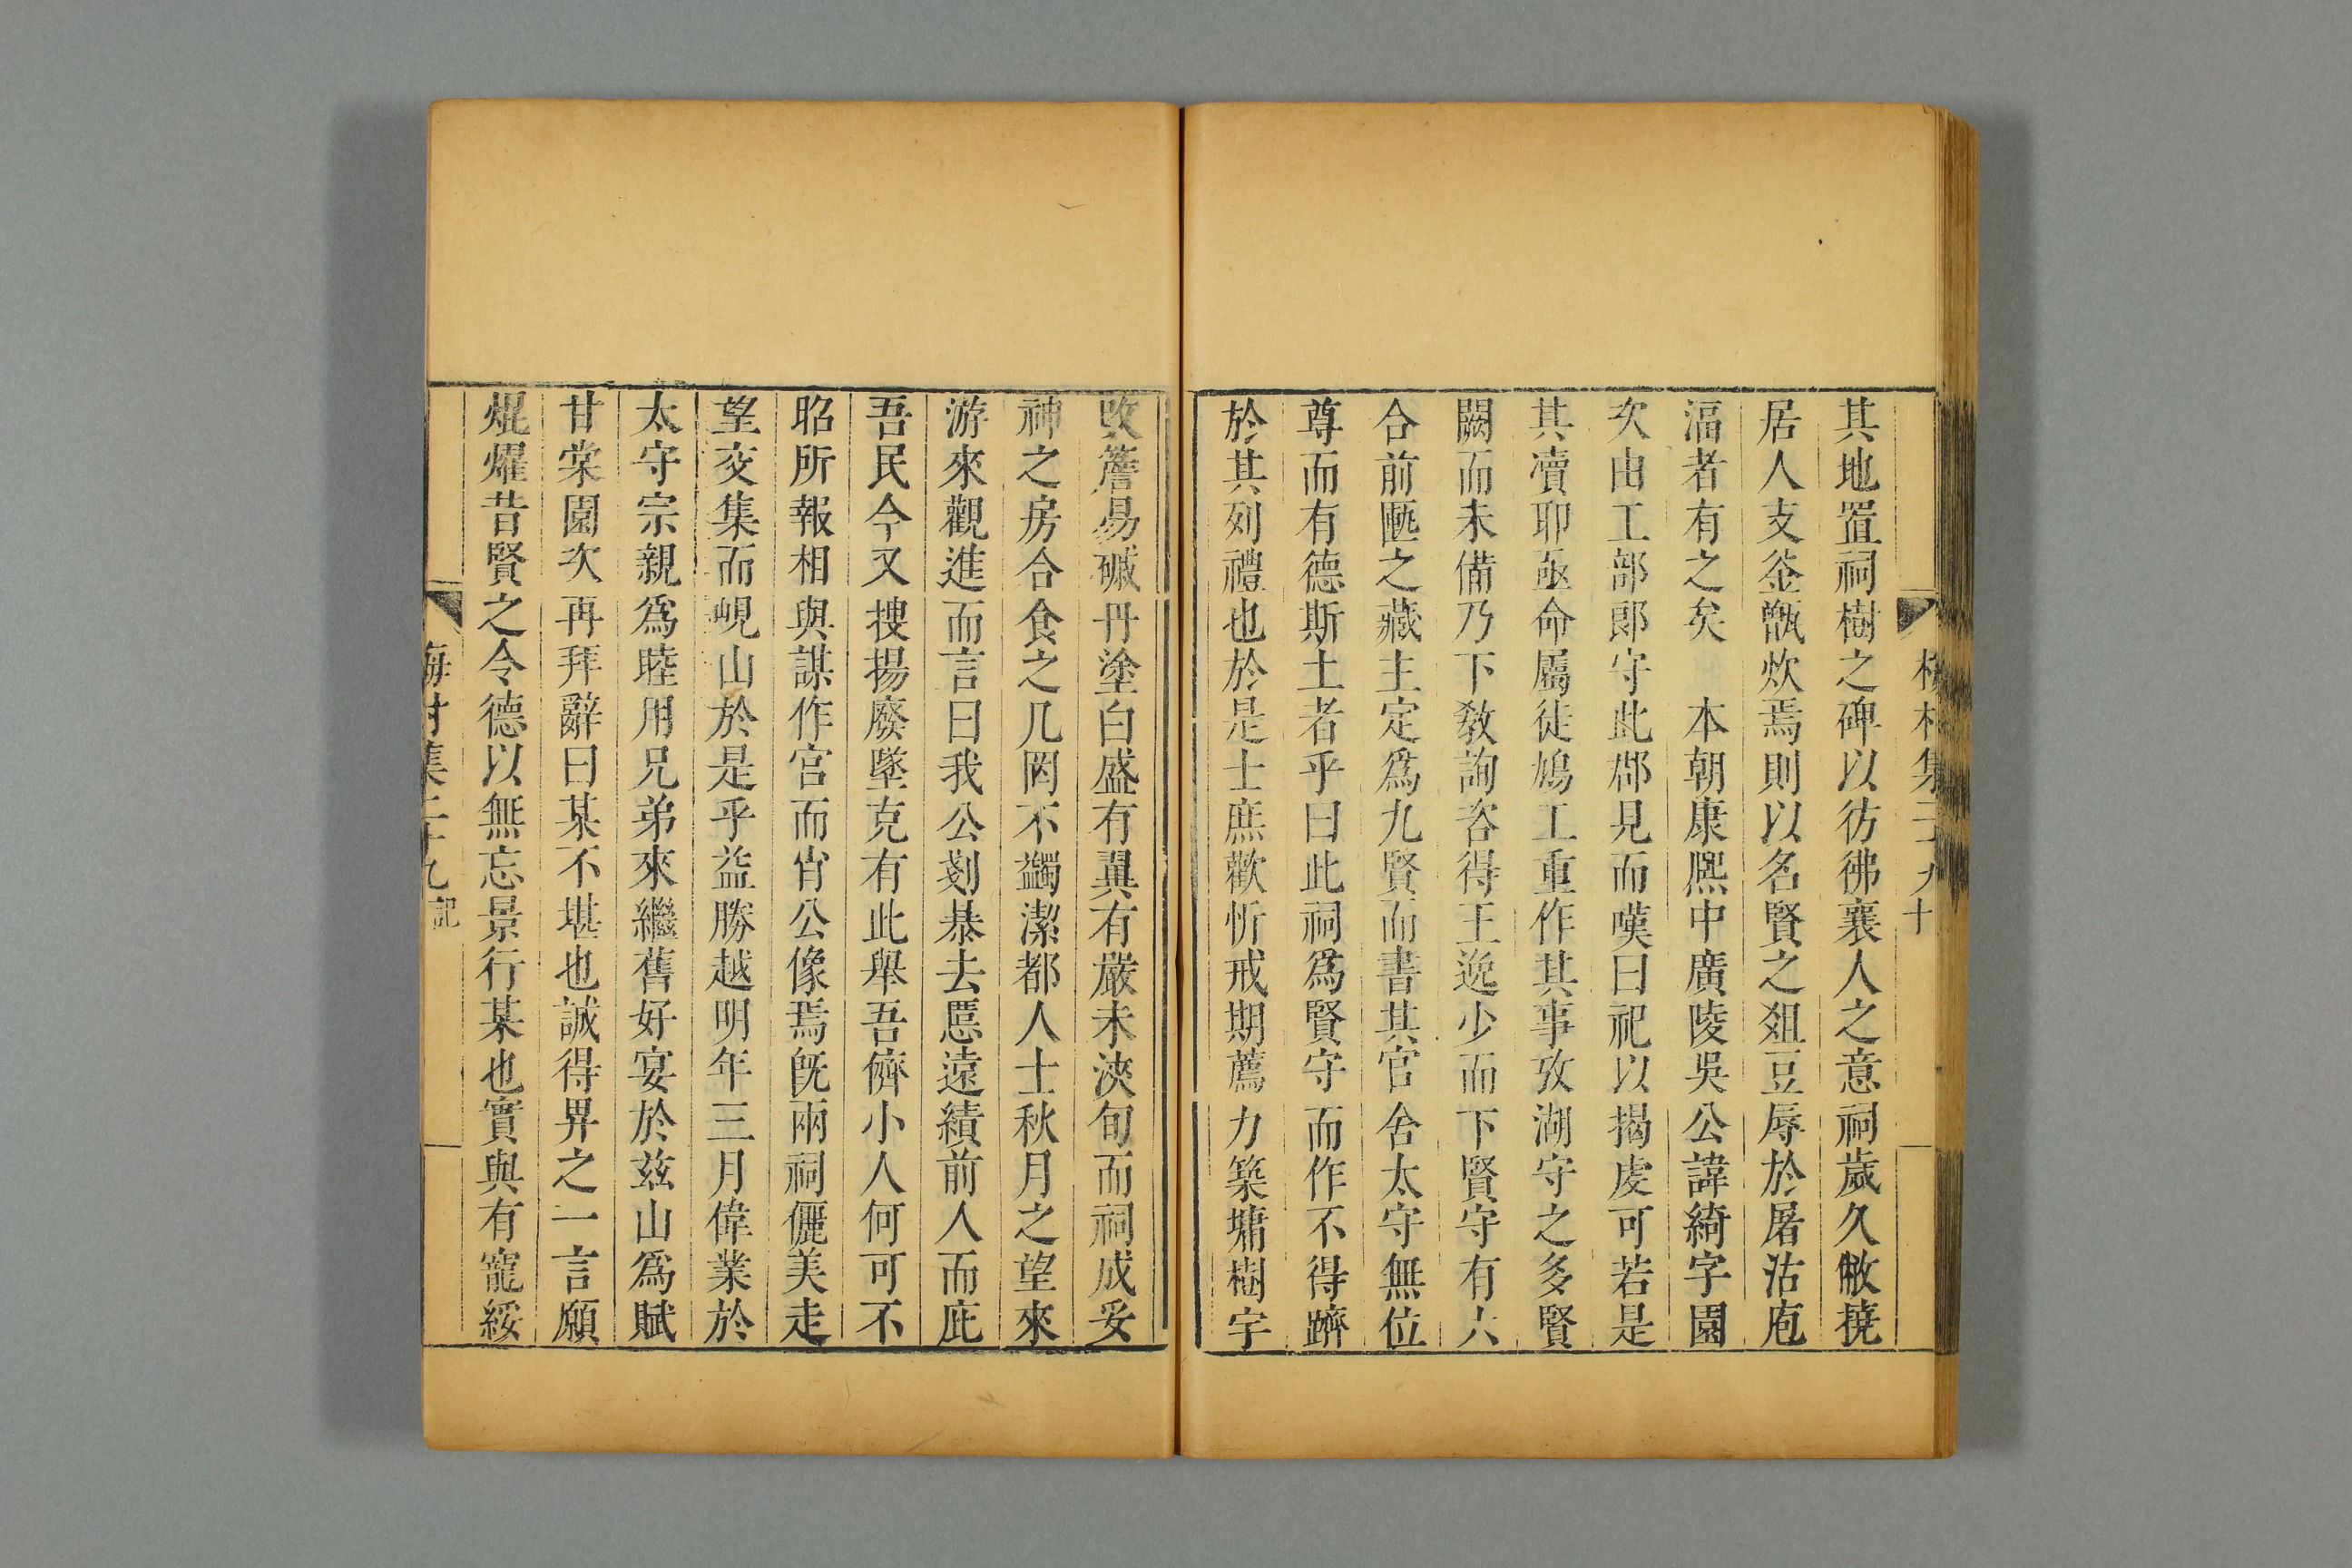 其地置祠樹之碑以彷彿襄人之意祠歲久敝撓
居人支釜甑炊焉則以名賢之爼豆辱於屠沽庖
湢者有之矣　本朝康熙中廣陵吳公諱綺字園
次由工部郎守此郡見而嘆曰祀以揭虔可若是
其瀆耶亟命屬徒鳩工重作其事攷湖守之多賢
闕而未備乃下敎詢咨得王逸少而下賢守有六
合前匦之藏主定爲九賢而書其官舍太守無位
尊而有德斯土者乎曰此祠爲賢守而作不得躋
於其列禮也於是士庶歡忻戒期薦力築墉樹宇
改簷易磩丹塗白盛有翼有嚴未浹旬而祠成妥
神之房合食之几罔不蠲潔都人士秋月之望來
游來觀進而言曰我公剗恭去慝遠績前人而庇
吾民今又搜揚廢墜克有此舉吾儕小人何可不
昭所報相與謀作官而肖公像焉旣兩祠儷美走
望交集而峴山於是乎益勝越明年三月偉業於
太守宗親爲睦用兄弟來繼舊好宴於玆山爲賦
甘棠園次再拜辭曰某不堪也誠得畀之一言願
焜燿昔賢之令德以無忘景行某也實與有寵綏
梅村集二十九記